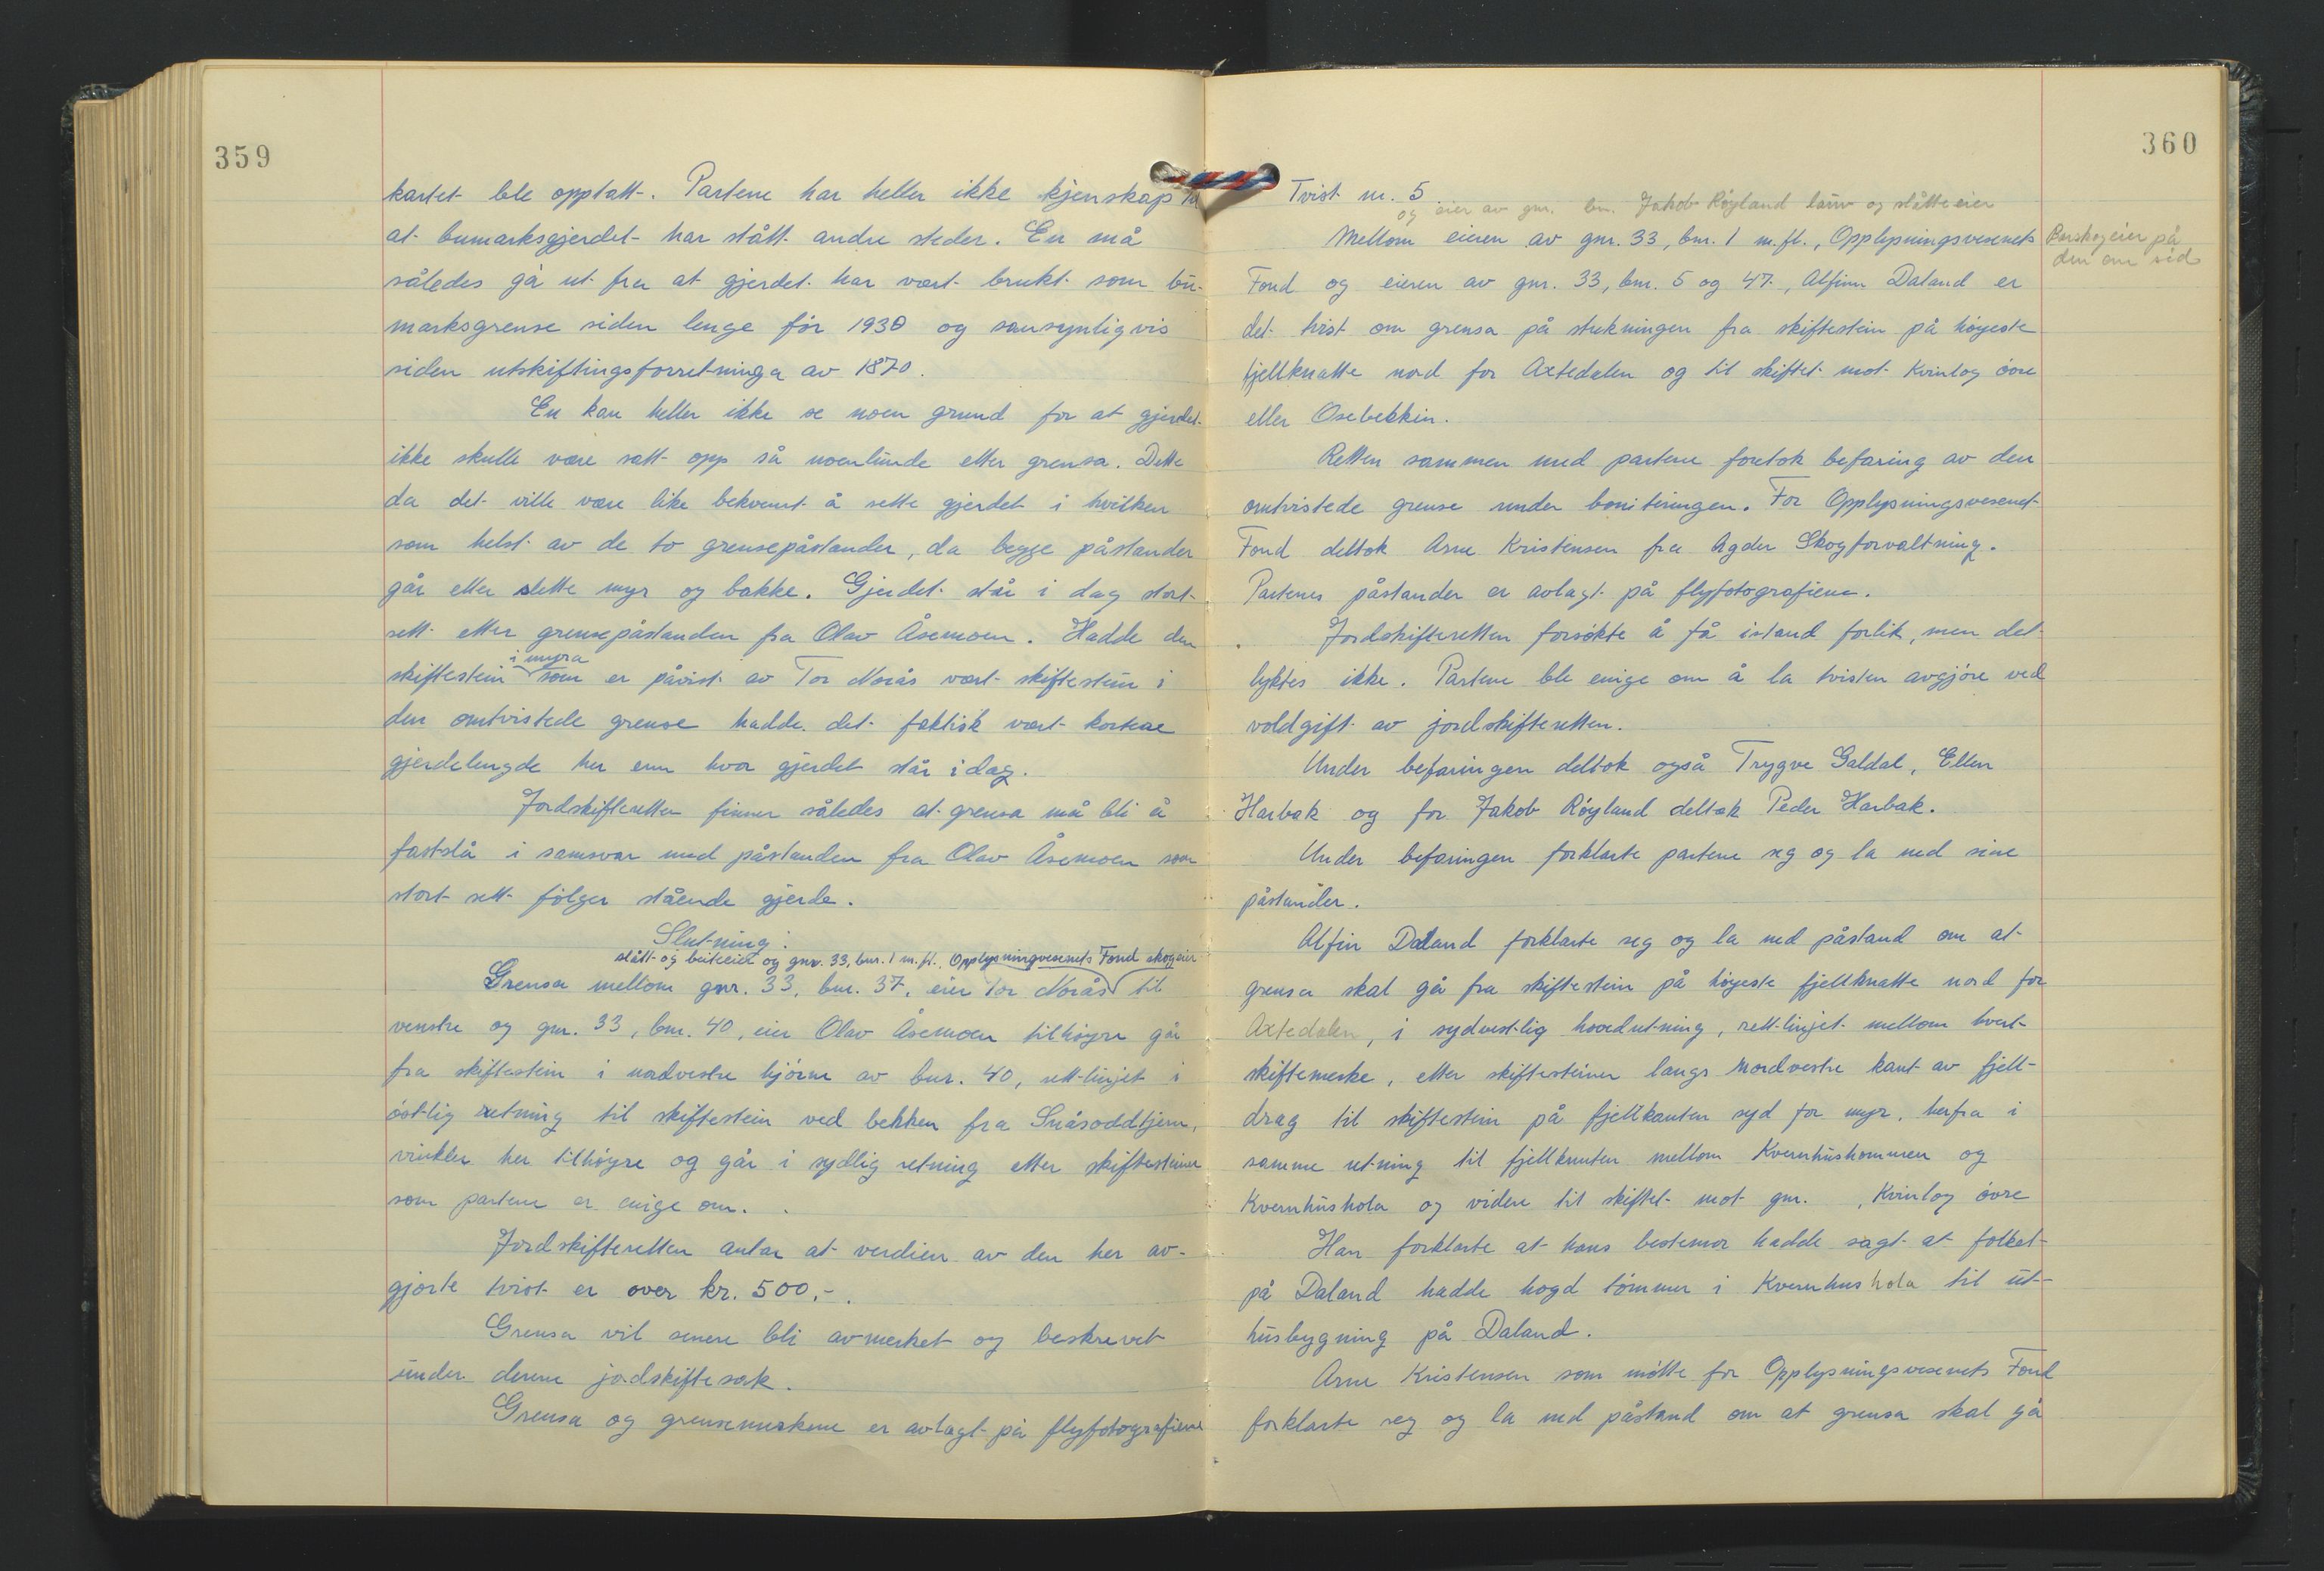 359
kartet ble opptatt. Partene har heller ikke kjenskap til
at bumarksgjerdet har stått andre steder. En må
således gå ut fra at gjerdet har vært brukt som bu-
marksgrense siden lenge før 1930 og sansynligvis
siden utskiftingsforretninga av 1870.
En kan heller ikke se noen grund for at gjerdet
ikke skulle være satt opp så noenlunde etter grensa. Dette
da det ville være like bekvemt å sette gjerdet i hvilken
som helst av de to grensepåstander, da begge påstander
går etter slette myr og bakke. Gjerdet står i dag stort
sett etter grensepåstanden fra Olav Åsemoen. Hadde den
i myra
skiftestein som er påvist av Tor Norås vært skiftestein i
den omtvistede grense hadde det faktisk vært kortere
gjerdelengde her enn hvor gjerdet står idag.
Jordskifteretten finner således at grensa må bli å
fastslå i samsvar med påstanden fra Olav Åsemoen som
stort sett følger stående gjerde.
Slutning:
slått- og beiteeier og gnr. 33, bnr. 1 m.fl. Opplysningvesenets Fond skogeier
Grensa mellom gnr. 33, bnr. 37, eier Tor Norås til
venstre og gnr. 33, bnr. 40, eier Olav Åsemoen tilhøyre går
fra skiftestein i nordvestre hjørne av bnr. 40, rett-linjet i
østlig retning til skiftestein ved bekken fra Snåsoddtjern,
vinkler her tilhøyre og går i sydlig retning etter skiftesteiner
som partene er enige om.
Jordskifteretten antar at verdien av den her av-
gjorte tvist er over kr. 500.-.
Grensa vil senere bli avmerket og beskrevet
under denne jordskiftesak.
Grensa og grensemerkene er avlagt på flyfotografiene
360
Tvist nr. 5
og eier av gnr. bnr. Jakob Røyland lauv og slåtteeier
Mellom eieren av gnr. 33, bnr. 1 m.fl., Opplysningsvesenets
Barskogeier på
den one sida
Fond og eieren av gnr. 33, bnr. 5 og 47, Alfinn Daland er
det tvist om grensa på strekningen fra skiftestein på høyeste
fjellknatte nord for Axtedalen og til skiftet mot Kvinlog øvre
eller Osebekkin.
Retten sammen med partene foretok befaring av den
omtvistede grense under boniteringen. For Opplysningsvesenet
Fond deltok Arne Kristensen fra Agder Skogforvaltning.
Partenes påstander er avlagt på flyfotografiene.
Jordskifteretten forsøkte å få istand forlik, men det
lyktes ikke. Partene ble enige om å la tvisten avgjøre ved
voldgift av jordskifteretten.
Under befaringen deltok også Trygve Galdal, Ellen
Harbak og for Jakob Røyland deltok Peder Harbak.
Under befaringen forklarte partene seg og la ned sine
påstander.
Alfin Daland forklarte seg og la ned påstand om at
grensa skal gå fra skiftestein på høyeste fjellknatte nord for
Axtedalen, i sydvestlig hovedretning, rett-linjet mellom hvert
skiftemerke, etter skiftesteiner langs nordvestre kant av fjell-
drag til skiftestein på fjellkanten syd for myr, herfra i
samme retning til fjellknuten mellom Kvernhushommen og
Kvernhushola og videre til skiftet mot gnr. , Kvinlog øvre
Han forklarte at hans bestemor hadde sagt at folket
på Daland hadde hogd tømmer i Kvernhushola til ut-
husbygning på Daland.
Arne Kristensen som møtte for Opplysningsvesenets Fond
forklarte seg og la ned påstand om at grensa skal gå